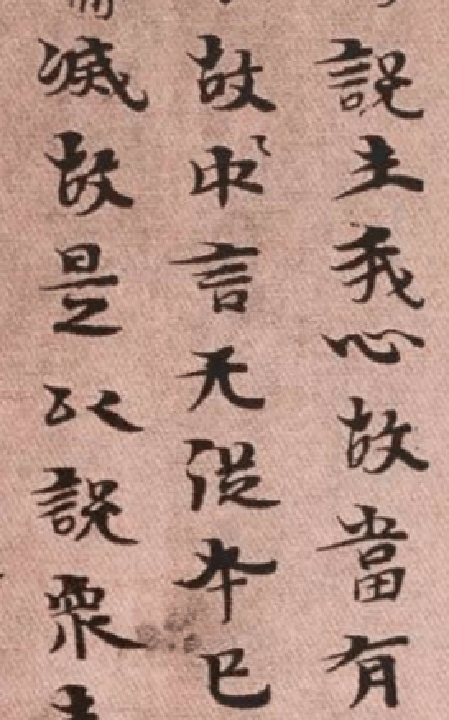 說主我心故當有
故中言无從本已
滅故是以說眾